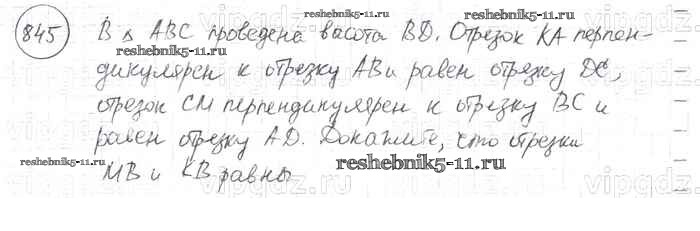 845 В △ ABC проведена васота BD. Отрезок KA перпен-
дикулярен к отрезку AB и равен отрезку DC,
отрезок CM перпендикулярен к отрезку BC и
равен отрезку AD. Докажите, что отрезки
MB и KB равны
reshebnik5-11.ru
reshebnik5-11.ru
reshebnik5-11.ru
reshebnik5-11.ru
reshebnik5-11.ru
vipgdz.ru